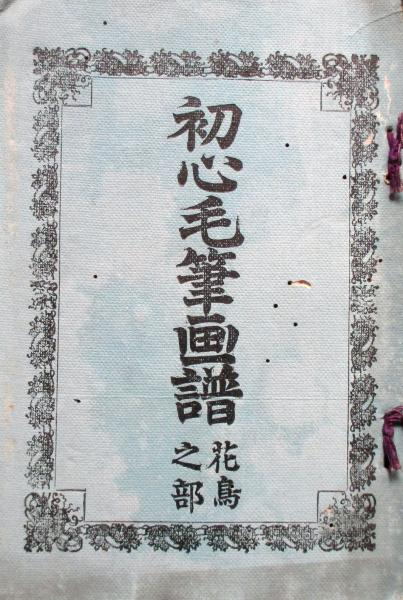 初心毛筆画譜
花鳥
之部